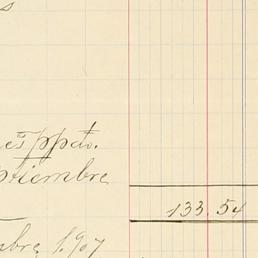 s
es ppdo.
ptiembre
133.54
mbre 1.907